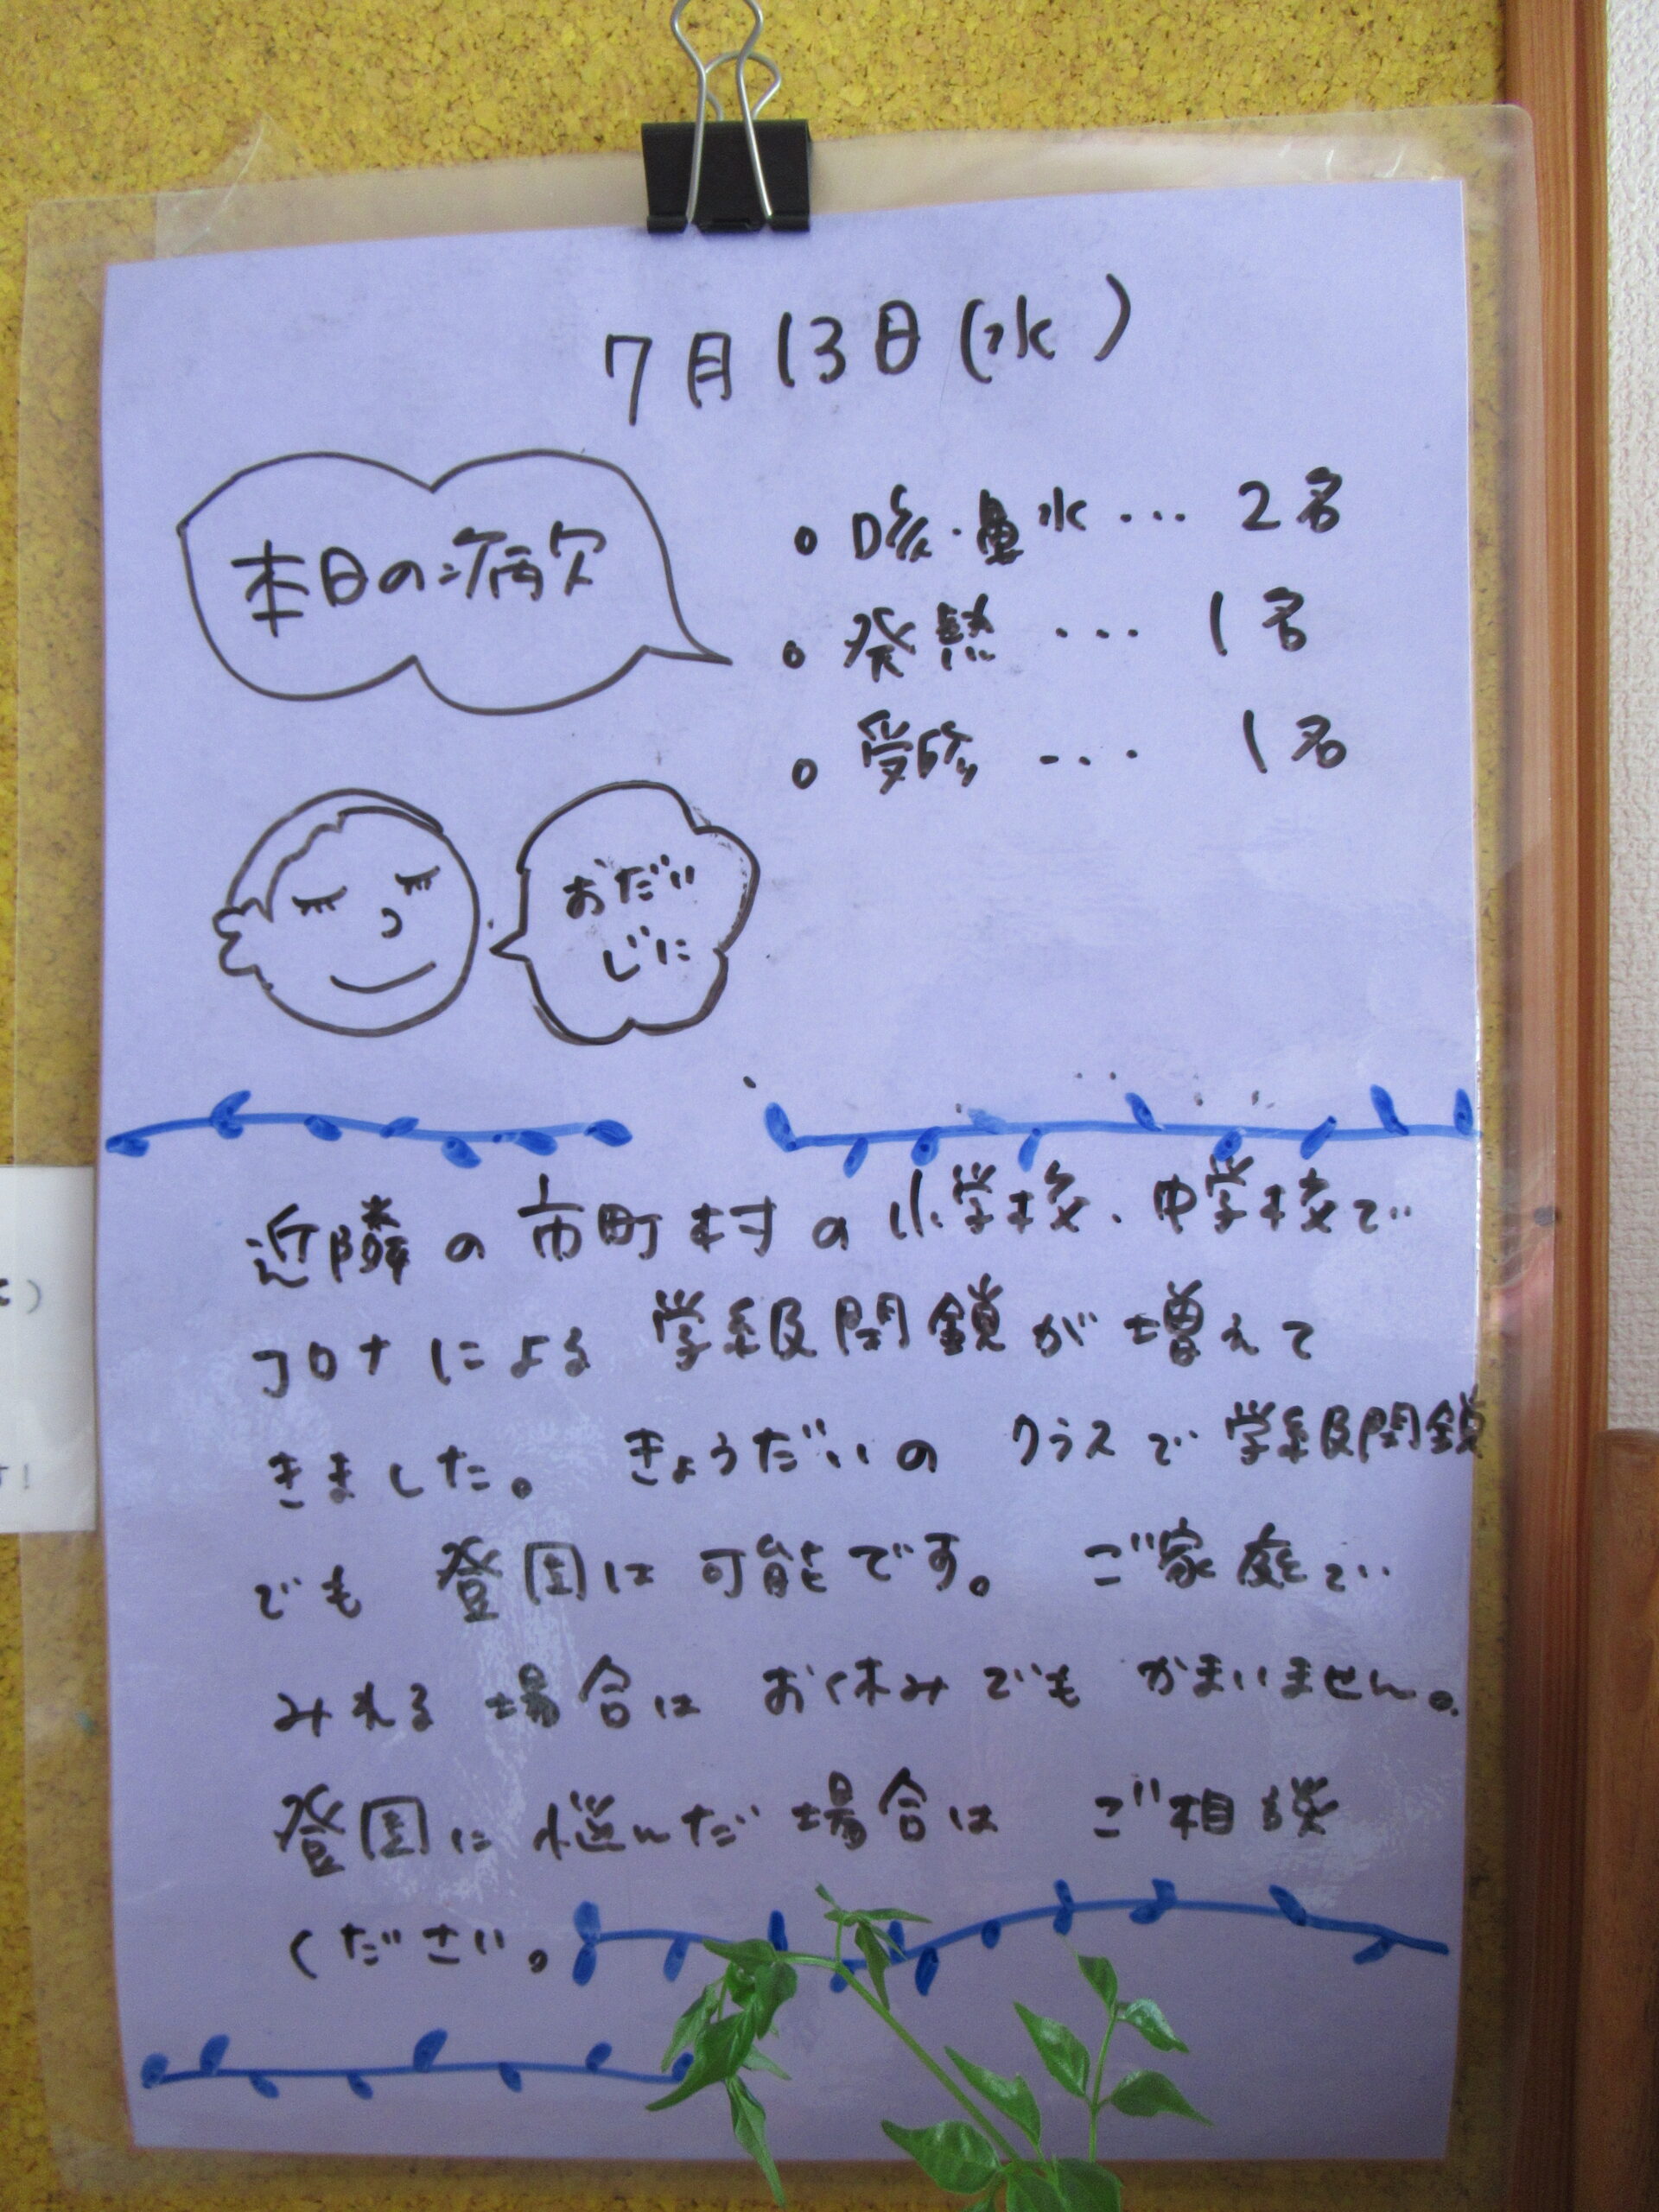 7月13日(水)
本日の病欠
。咳・鼻水・・・ 2名
。発熱 ・・・ 1名
。受診 ・・・ 1名
おだい
じに
近隣の市町村の小学校、中学校で
コロナによる 学級閉鎖が増えて
きました。 きょうだいの クラスで 学級閉鎖
でも 登園は可能です。 ご家庭で
みれる場合は お休みでも かまいません。
登園に悩んだ場合は ご相談
ください。